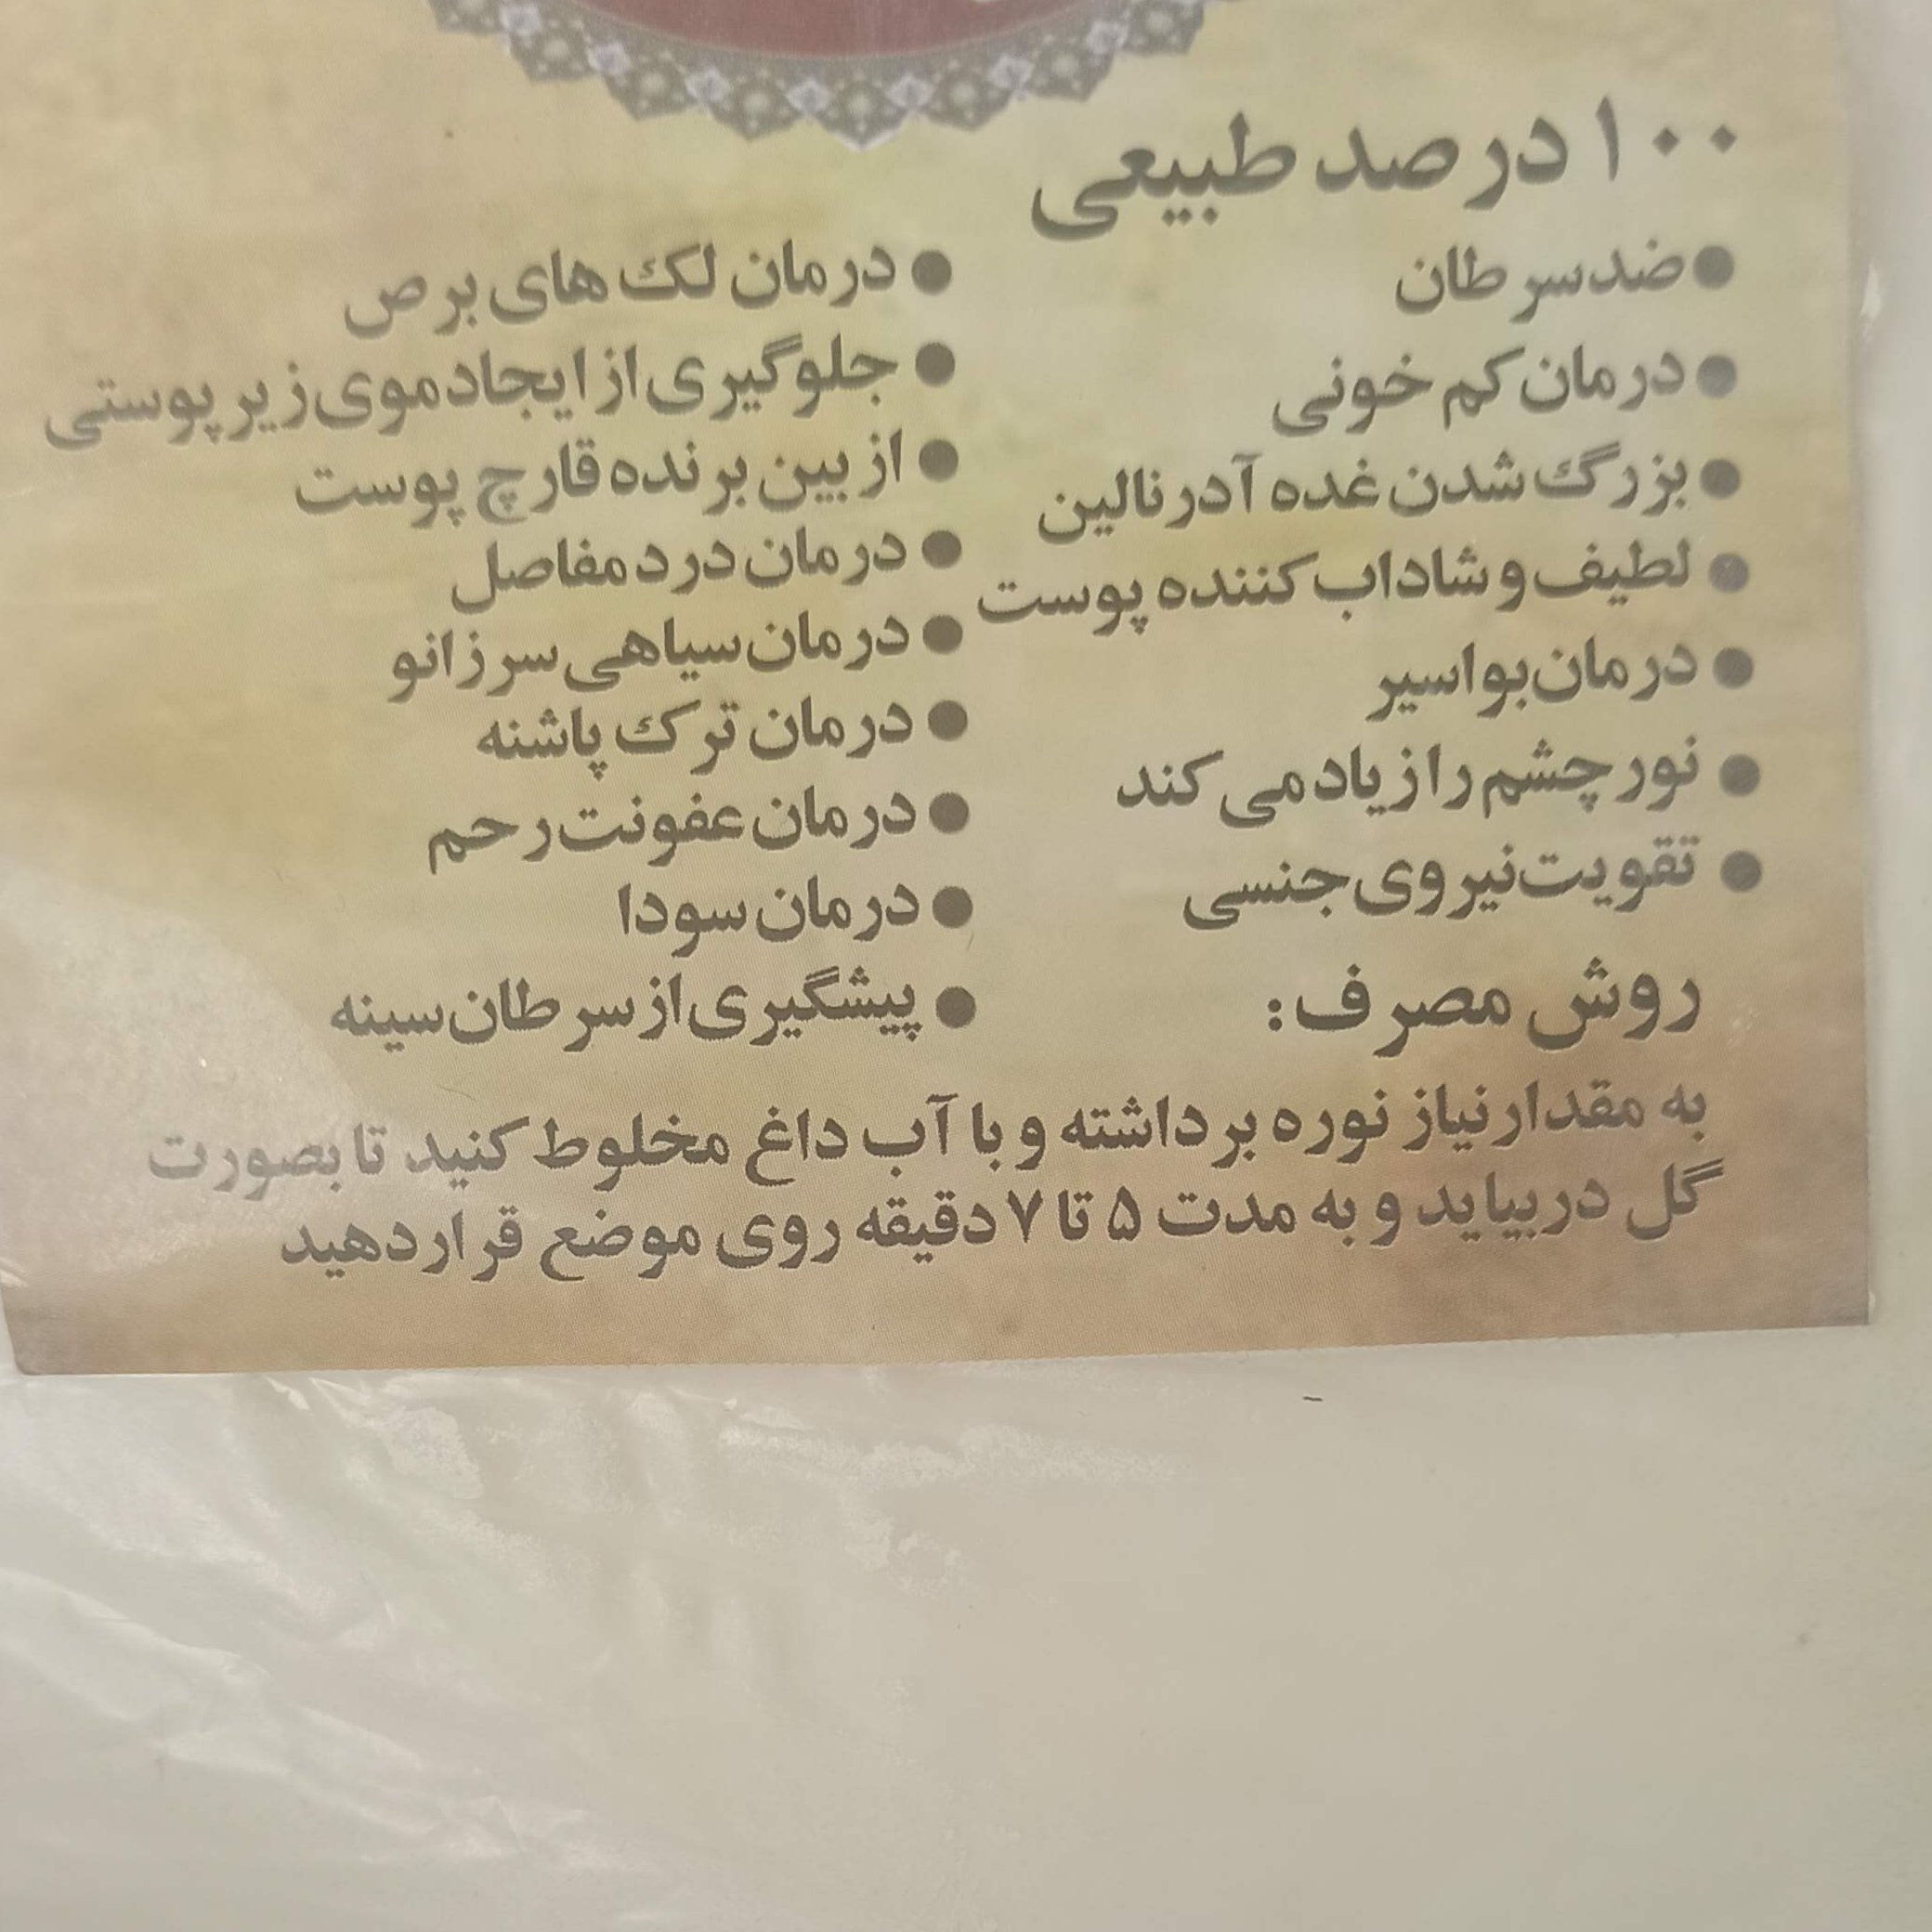 ۱۰۰ درصد طبیعی
● ضد سرطان
● درمان کم خونی
● بزرگ شدن غده آدرنالین
● لطیف و شاداب کننده پوست
● درمان بواسیر
● نور چشم را زیاد می کند
● تقویت نیروی جنسی
● درمان لک های برص
● جلوگیری از ایجاد موی زیر پوستی
● از بین برنده قارچ پوست
● درمان درد مفاصل
● درمان سیاهی سر زانو
● درمان ترک پاشنه
● درمان عفونت رحم
● درمان سودا
● پیشگیری از سرطان سینه
روش مصرف:
به مقدار نیاز نوره برداشته و با آب داغ مخلوط کنید تا بصورت
گل در بیاید و به مدت ۵ تا ۷ دقیقه روی موضع قرار دهید